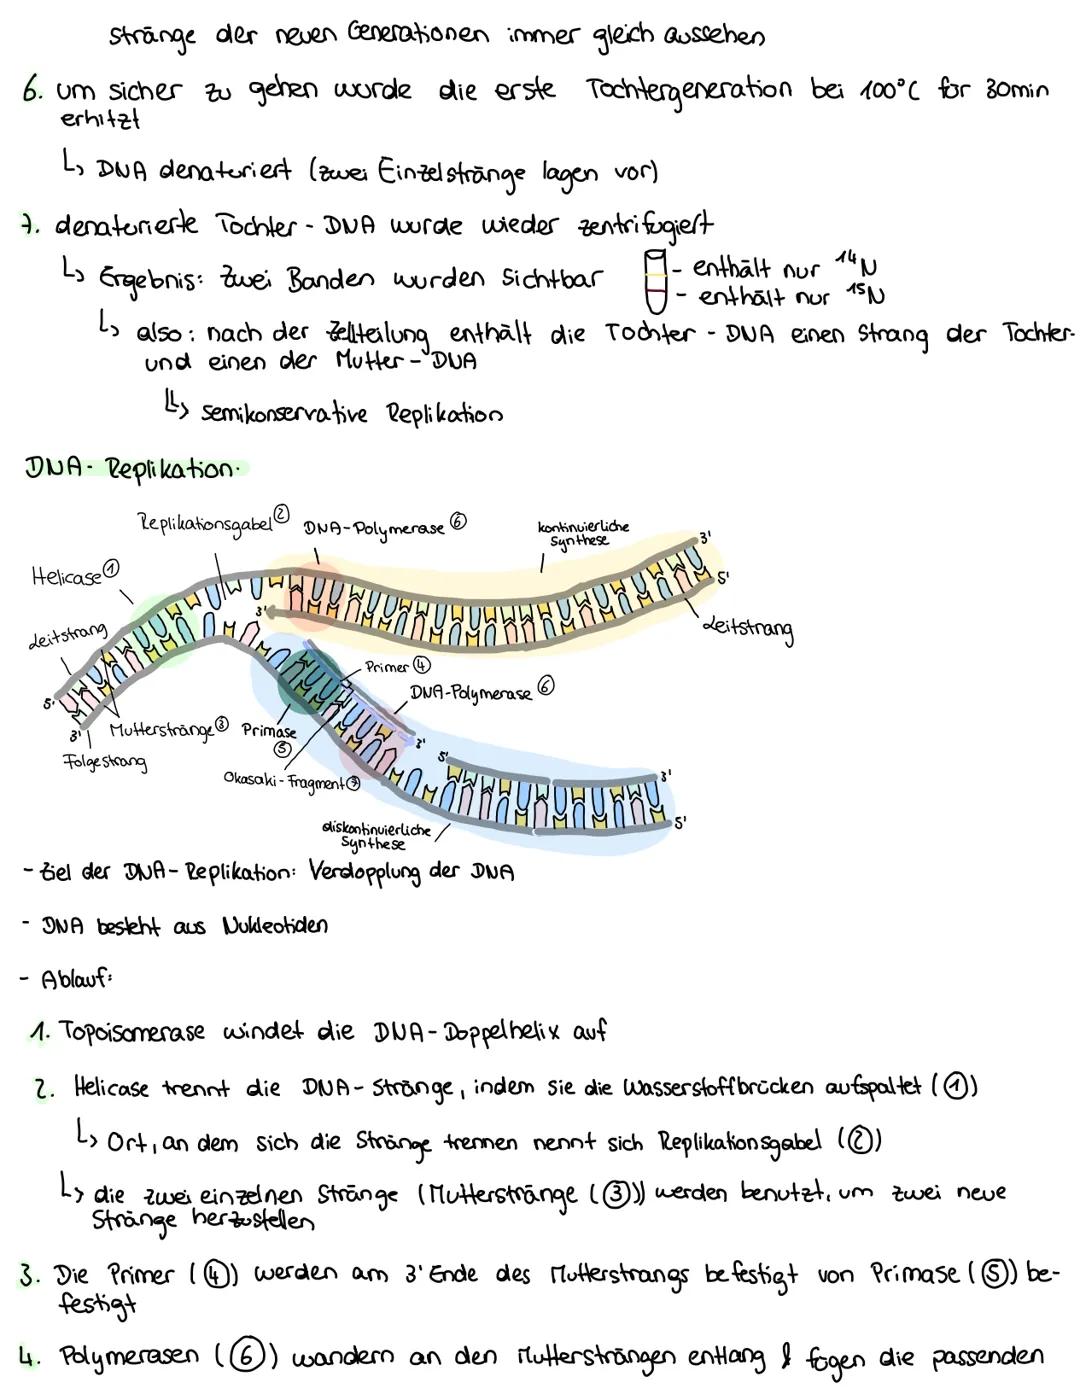 stränge der neuen Generationen immer gleich aussehen
6. um sicher zu gehen wurde die erste Tochtergeneration bei 100°C für 30min
erhitzt
↳ DNA denaturiert (zwei Einzelstränge lagen vor)
7. denaturierte Tochter-DNA wurde wieder zentrifugiert
↳ Ergebnis: zwei Banden wurden sichtbar
- enthält nur ¹⁴N
- enthält nur ¹⁵N
↳ also: nach der Zellteilung enthält die Tochter-DNA einen Strang der Tochter-
und einen der Mutter-DNA
↳ semikonservative Replikation
DNA-Replikation:
Replikationsgabel ②
DNA-Polymerase ⑥
kontinuierliche
Synthese
3'
Helicase ①
5'
3'
Leitstrang
Leitstrang
Primer ④
DNA-Polymerase ⑥
5'
Mutterstränge ③
Primase
⑤
3'
3'
5'
Folgestrang
Okasaki-Fragment ⑦
3'
5'
diskontinuierliche
Synthese
- Ziel der DNA-Replikation: Verdopplung der DNA
- DNA besteht aus Nukleotiden
- Ablauf:
1. Topoisomerase windet die DNA-Doppelhelix auf
2. Helicase trennt die DNA-Stränge, indem sie die Wasserstoffbrücken aufspaltet (①)
↳ Ort, an dem sich die Stränge trennen nennt sich Replikationsgabel (②)
↳ die zwei einzelnen Stränge (Mutterstränge (③)) werden benutzt, um zwei neue
Stränge herzustellen
3. Die Primer (④) werden am 3' Ende des Mutterstrangs befestigt von Primase (⑤) be-
festigt
4. Polymerasen (⑥) wandern an den Muttersträngen entlang & fügen die passenden